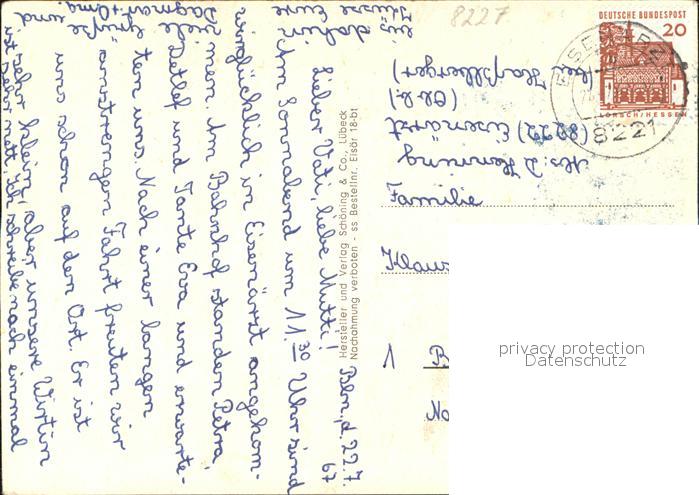 8227
DEUTSCHE BUNDESPOST
20
LORSCH/HESSEN
EISENÄRZT
8221
Bln., d. 22.7.
67
Lieber Vati, liebe Mutti!
Am Sonnabend um 11.30 Uhr sind
wir glücklich in Eisenärzt angekom-
men. Am Bahnhof standen Petra,
Detlef und Tante Eva und erwarte-
ten uns. Nach einer langen
anstrengen Fahrt freuten wir
uns schon auf den Ort. Er ist
sehr klein, aber unsere Wirtin
ist sehr nett. Ich schreibe noch einmal
bis dahin
Viele Grüße und
Dagmar + Oma
Hersteller und Verlag Schöning & Co., Lübeck
Nachahmung verboten - ss Bestellnr. Eisär 18-bt
Abs: D. Henning
(8222) Eisenärzt
(Obb.)
bei
Familie
Klaus
1
B
No
privacy protection
Datenschutz